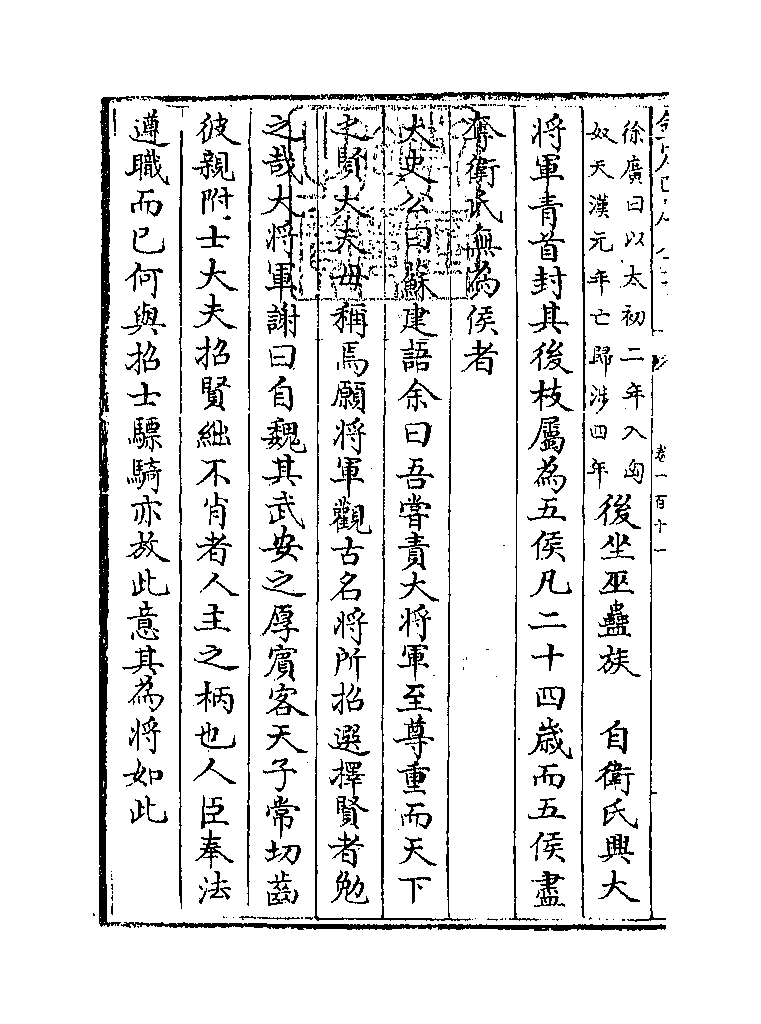 徐廣曰以太初二年入匈
奴天漢元年亡歸涉四年
後坐巫蠱族　自衛氏興大
將軍青首封其後枝屬為五侯凡二十四歲而五侯盡
奪衛氏無為侯者
太史公曰蘇建語余曰吾嘗責大將軍至尊重而天下
之賢大夫毋稱焉願將軍觀古名將所招選擇賢者勉
之哉大將軍謝曰自魏其武安之厚賓客天子常切齒
彼親附士大夫招賢絀不肖者人主之柄也人臣奉法
遵職而已何與招士驃騎亦放此意其為將如此
卷一百十一